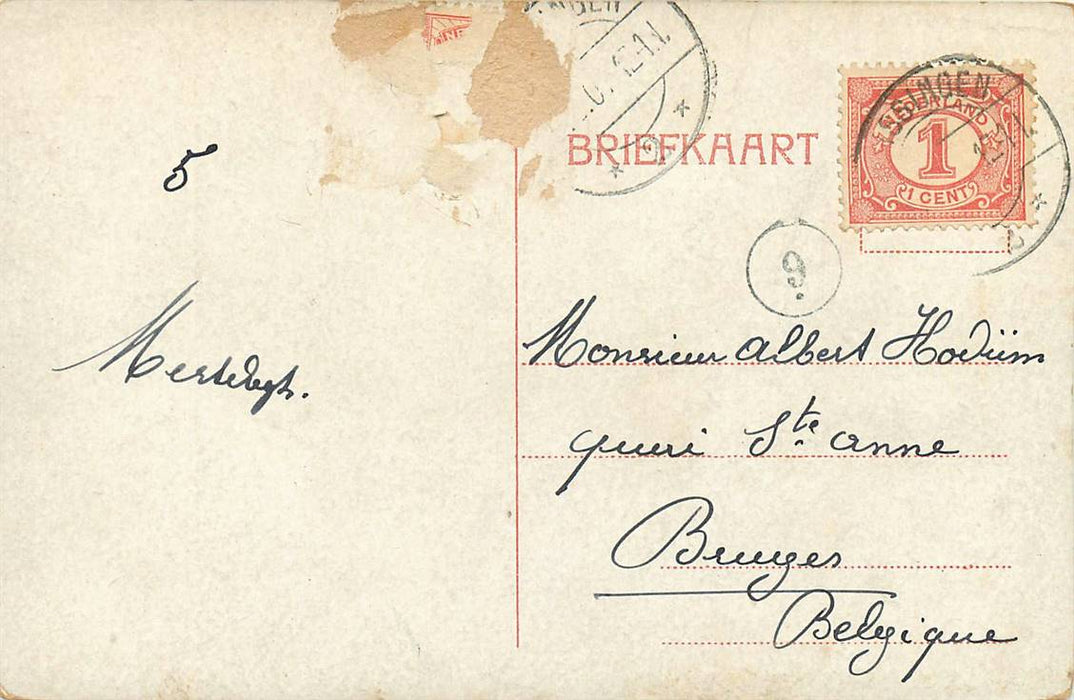 BRIEFKAART
NEDERLAND
1
1 CENT
9
5
Monsieur Albert Hodüm
quai Ste Anne
Bruges
Belgique